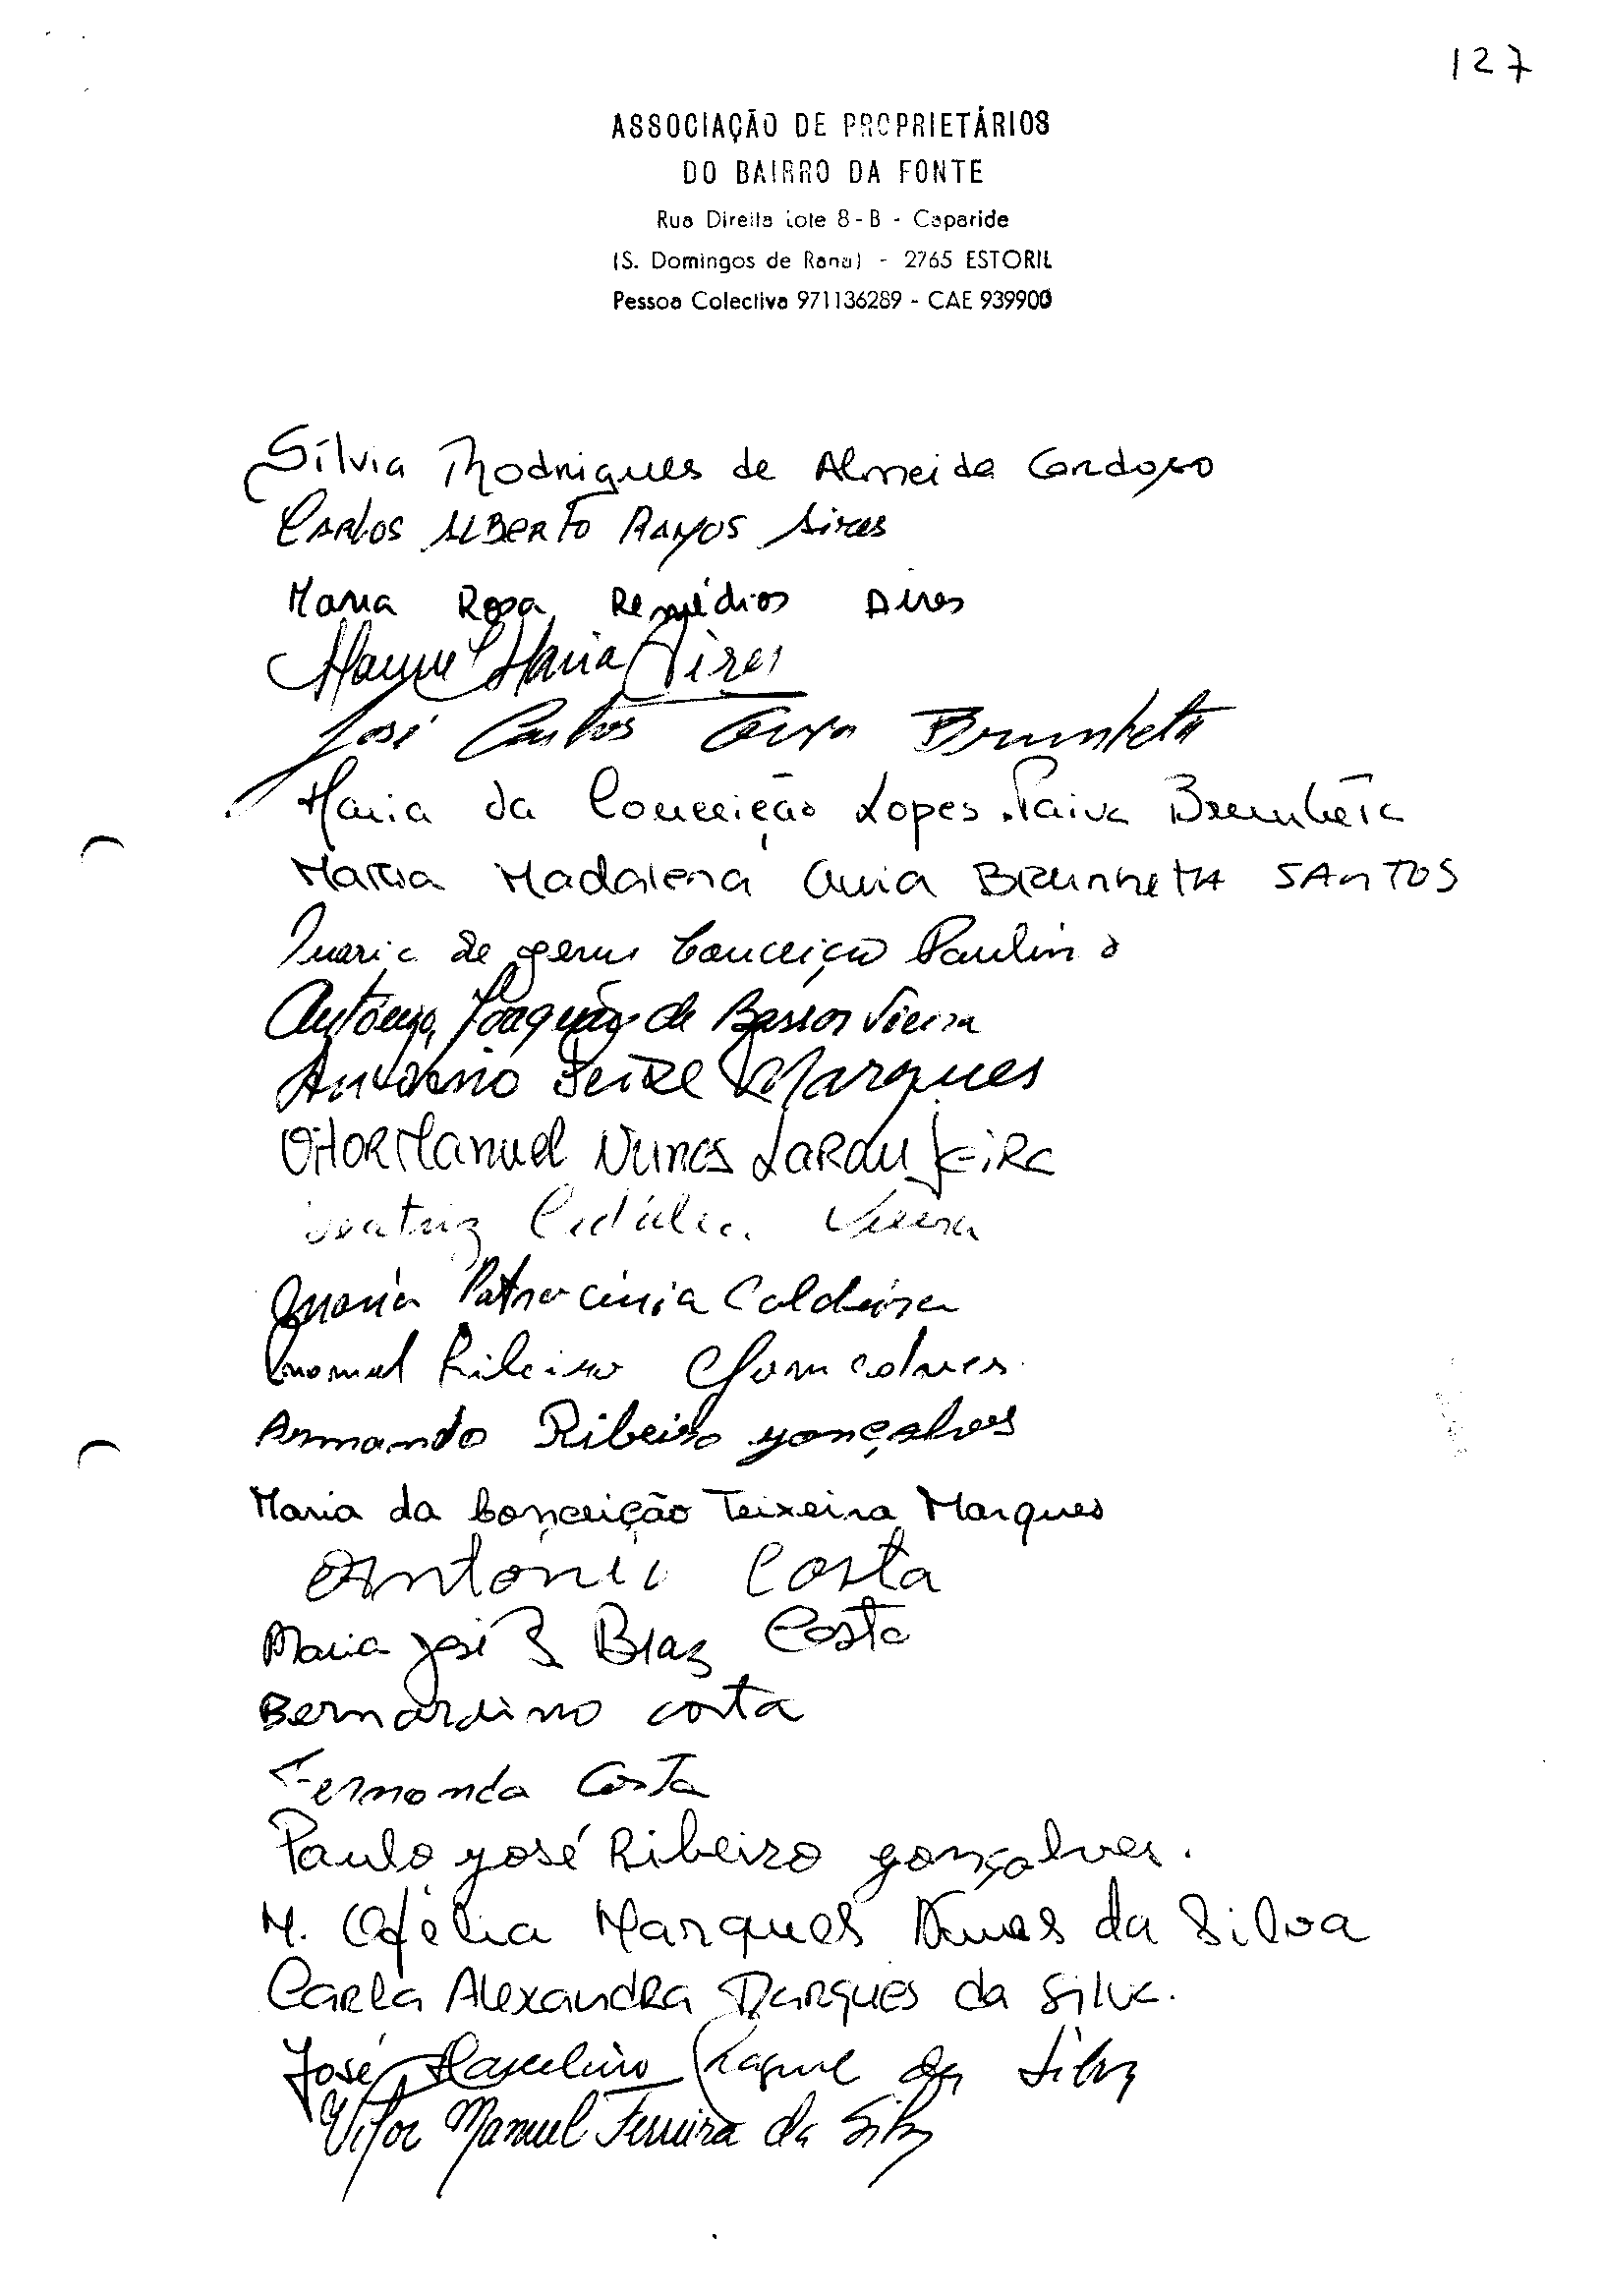 127
ASSOCIAÇÃO DE PROPRIETÁRIOS
DO BAIRRO DA FONTE
Rua Direita Lote 8-B - Caparide
(S. Domingos de Rana) - 2765 ESTORIL
Pessoa Colectiva 971136289 - CAE 939900
Sílvia Rodrigues de Almeida Cardoso
Carlos Alberto Ramos Aires
Maria Rosa Remédios Aires
Manuel Maria Aires
José Carlos Brunheta
Maria da Conceição Lopes Paiva Brunheta
Maria Madalena Brunheta SANTOS
Maria de Conceição Paulino
António Joaquim de Bastos Vieira
António Marques
Vitor Manuel Nunes Laranjeira
Beatriz Vieira
Maria Patrocinia Caldeira
Manuel Ribeiro Goncalves
Armando Ribeiro gonçalves
Maria da Conceição Teixeira Marques
António Costa
Maria José Braz Costa
Bernardino costa
Fernanda Costa
Paulo josé Ribeiro gonçalves.
M. Ofélia Marques Nunes da Silva
Carla Alexandra Marques da Silva.
José Marcelino da Silva
Vitor Manuel Ferreira da Silva